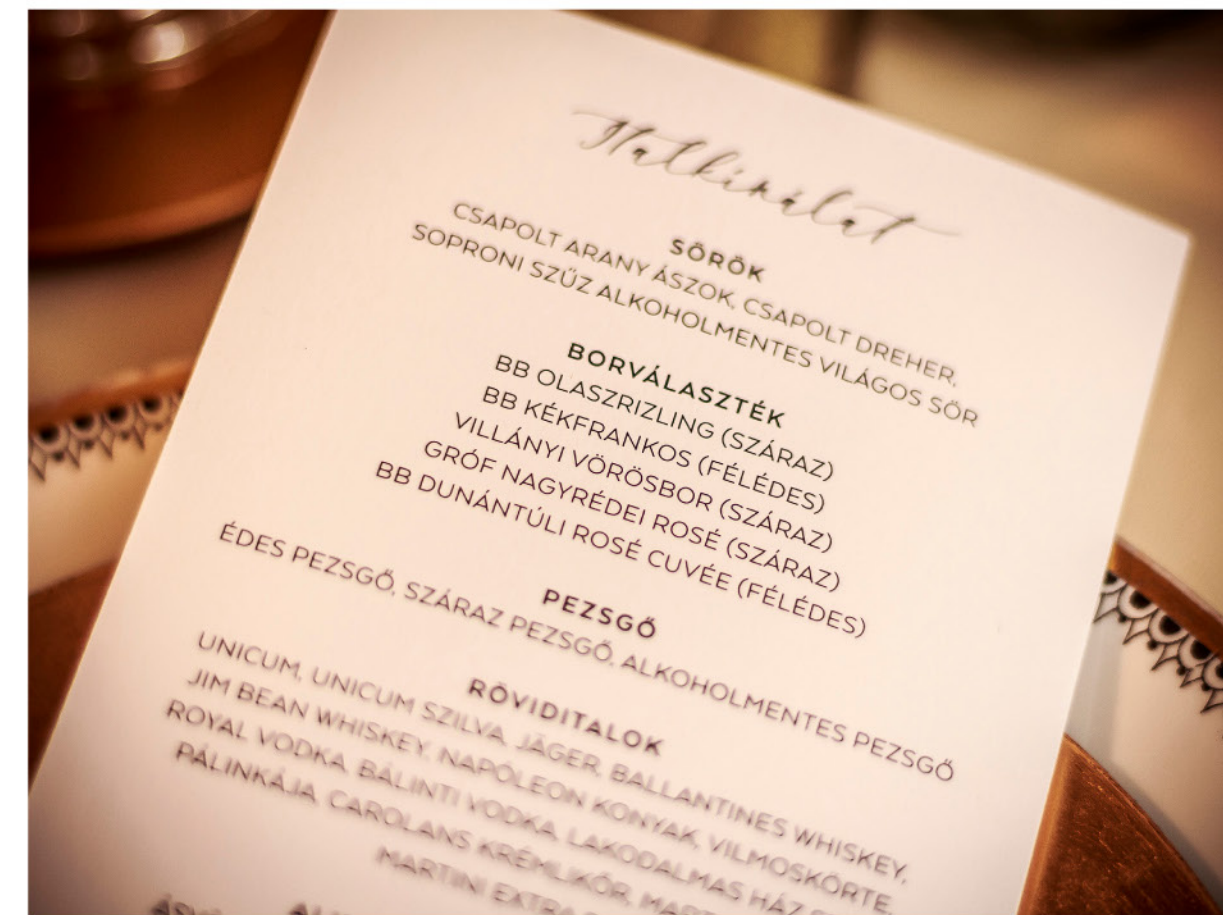 Italkínálat
SÖRÖK
CSAPOLT ARANY ÁSZOK, CSAPOLT DREHER,
SOPRONI SZŰZ ALKOHOLMENTES VILÁGOS SÖR
BORVÁLASZTÉK
BB OLASZRIZLING (SZÁRAZ)
BB KÉKFRANKOS (FÉLÉDES)
VILLÁNYI VÖRÖSBOR (SZÁRAZ)
GRÓF NAGYRÉDEI ROSÉ (SZÁRAZ)
BB DUNÁNTÚLI ROSÉ CUVÉE (FÉLÉDES)
PEZSGŐ
ÉDES PEZSGŐ, SZÁRAZ PEZSGŐ, ALKOHOLMENTES PEZSGŐ
RÖVIDITALOK
UNICUM, UNICUM SZILVA, JÄGER, BALLANTINES WHISKEY,
JIM BEAN WHISKEY, NAPÓLEON KONYAK, VILMOSKÖRTE,
ROYAL VODKA, BÁLINTI VODKA, LAKODALMAS HÁZ
PÁLINKÁJA, CAROLANS KRÉMLIKŐR,
MARTINI EXTRA